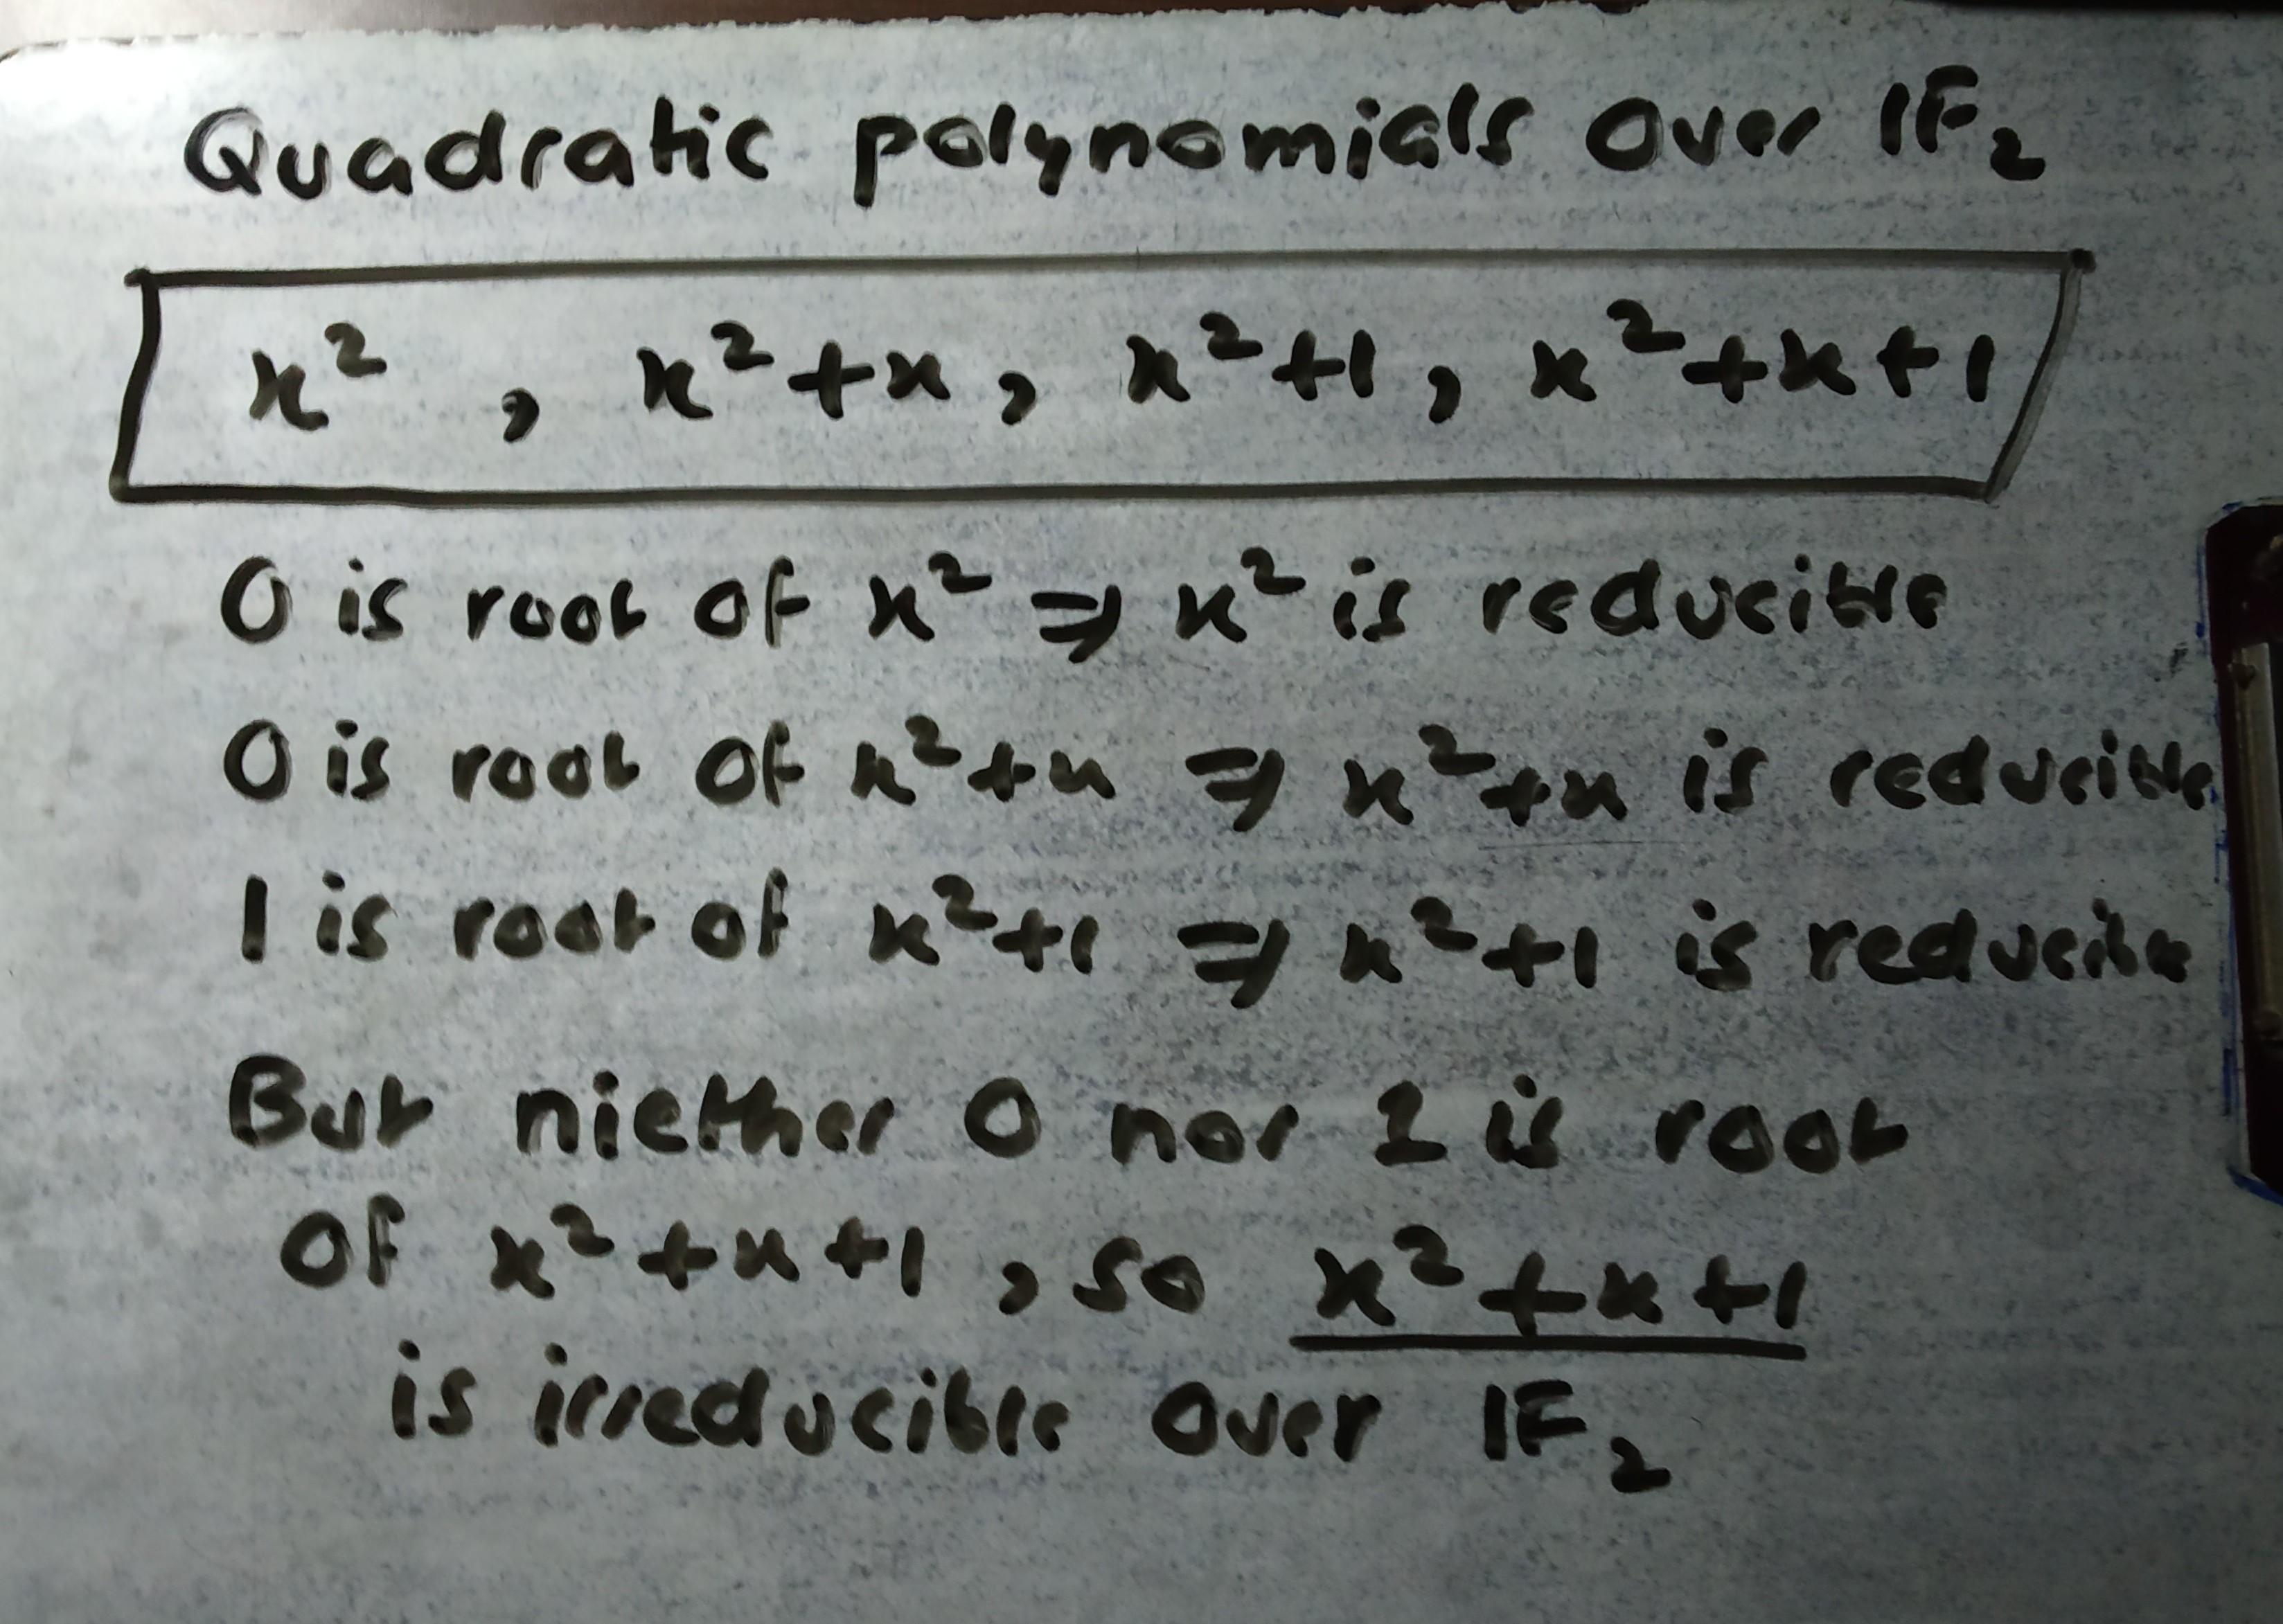 Quadratic polynomials over 𝔽₂
x² , x²+x, x²+1, x²+x+1
0 is root of x² ⇒ x² is reducible
0 is root of x²+x ⇒ x²+x is reducible
1 is root of x²+1 ⇒ x²+1 is reducible
But niether 0 nor 1 is root
of x²+x+1, so x²+x+1
is irreducible over 𝔽₂